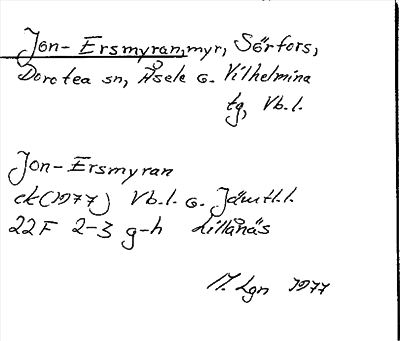 Jon-Ersmyran, myr, Sörfors,
Dorotea sn, Åsele o. Vilhelmina
tg, Vb.l.
Jon-Ersmyran
ek(1977) Vb.l. o. Jämtl.l.
22F 2-3 g-h Lillånäs
M. Lgn 1977